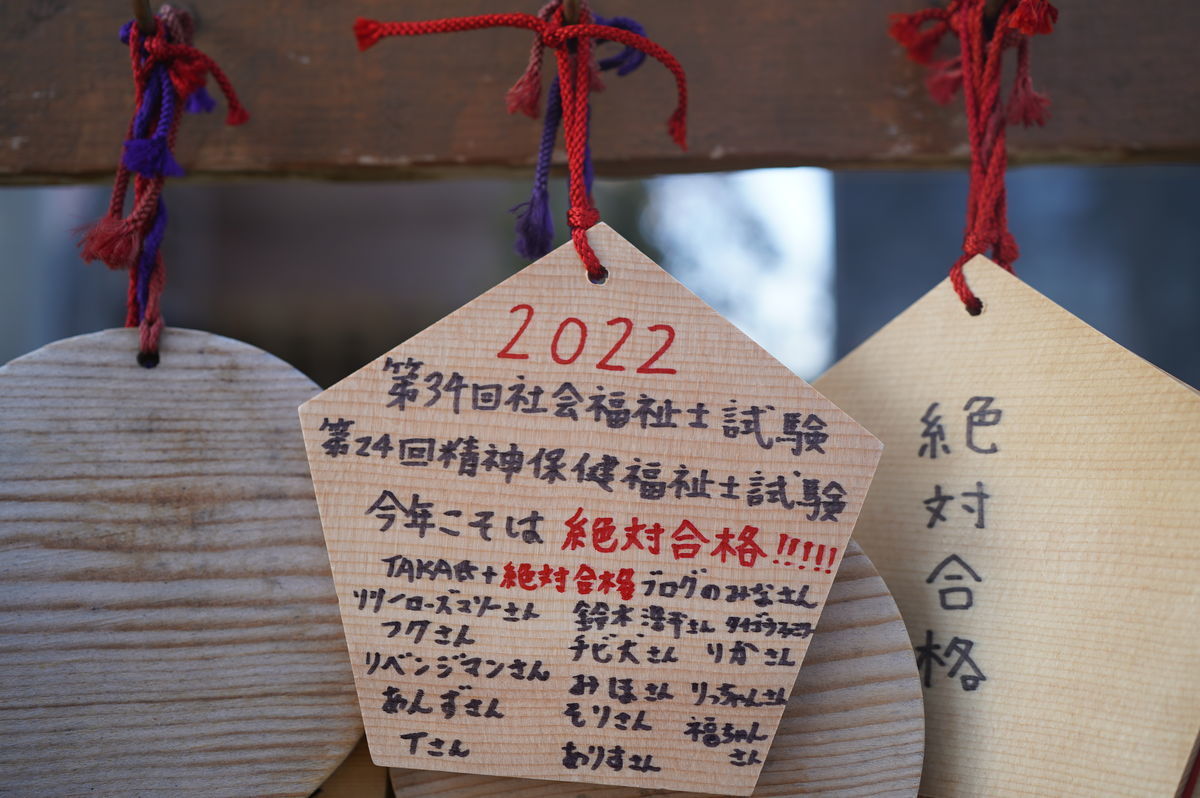 2022
第34回社会福祉士試験
第24回精神保健福祉士試験
今年こそは絶対合格!!!!!
TAKA氏+絶対合格ブログのみなさん
リリーローズマリーさん 鈴木淳平さん
フクさん チビ犬さん りかさん
リベンジマンさん みほさん りっちゃんさん
あんずさん そりさん 福ちゃんさん
Tさん ありすさん
絶対合格